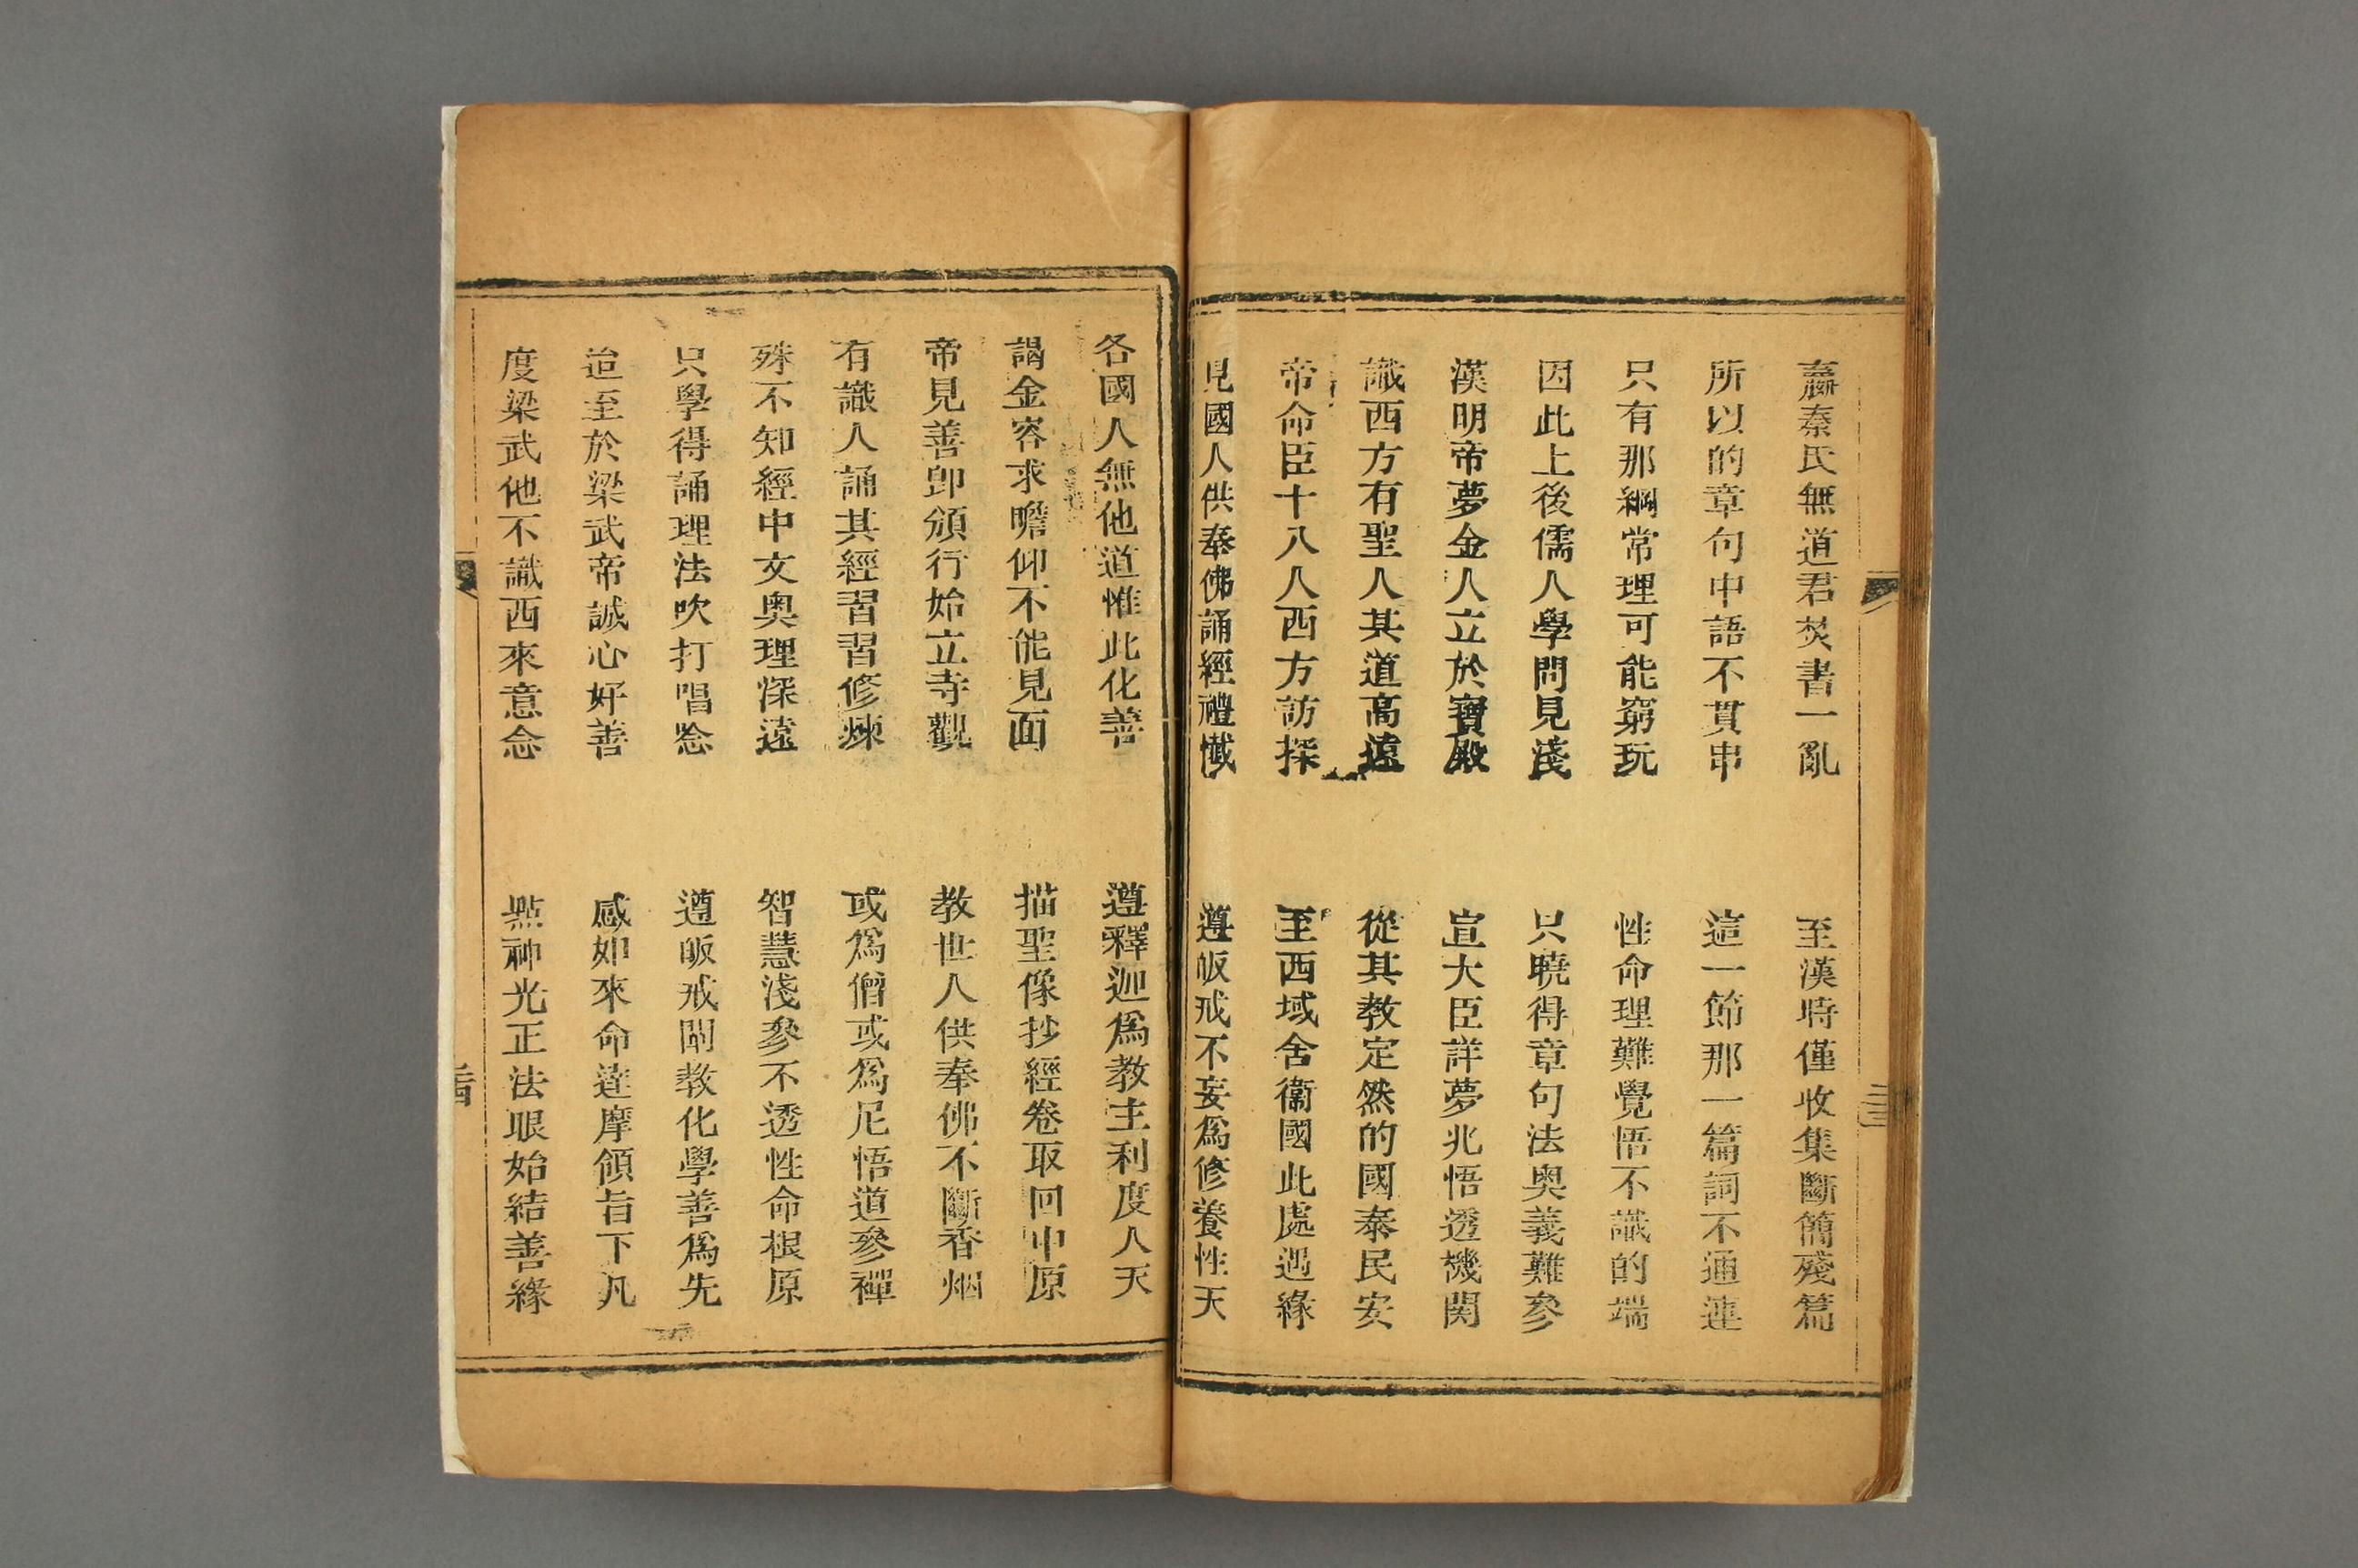 嬴秦氏無道君焚書一亂　至漢時僅收集斷簡殘篇
所以的章句中語不貫串　這一節那一篇詞不通連
只有那綱常理可能窮玩　性命理難覺悟不識的端
因此上後儒人學問見淺　只曉得章句法奧義難參
漢明帝夢金人立於寶殿　宣大臣詳夢兆悟透機関
識西方有聖人其道高遠　從其教定然的國泰民安
帝命臣十八人西方訪探　至西域舍衞國此處遇緣
見國人供奉佛誦經禮懺　遵皈戒不妄爲修養性天
各國人無他道惟此化善　遵釋迦爲教主利度人天
謁金容求瞻仰不能見面　描聖像抄經卷取回中原
帝見善卽頒行始立寺觀　教世人供奉佛不斷香烟
有識人誦其經習習修煉　或爲僧或爲尼悟道參禪
殊不知經中文奧理深遠　智慧淺參不透性命根原
只學得誦理法吹打唱念　遵皈戒開教化學善爲先
迨至於梁武帝誠心好善　感如來命達摩領旨下凡
度梁武他不識西來意念　點神光正法眼始結善緣